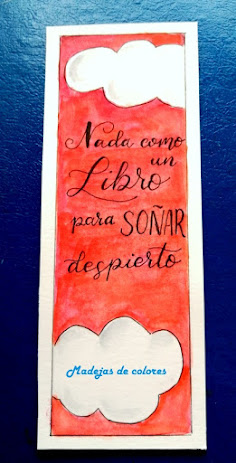 Nada como
un
Libro
para SOÑAR
despierto
Madejas de colores